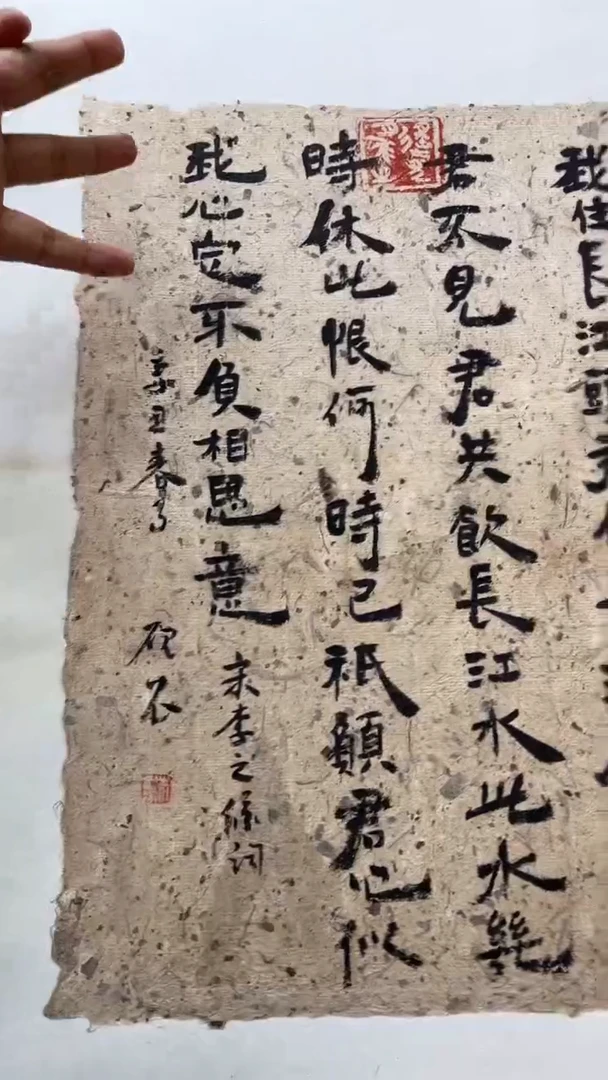 我住長江頭
君不見君共飲長江水此水幾
時休此恨何時已祇願君心似
我心定不負相思意
宋李之儀詞
辛丑春写